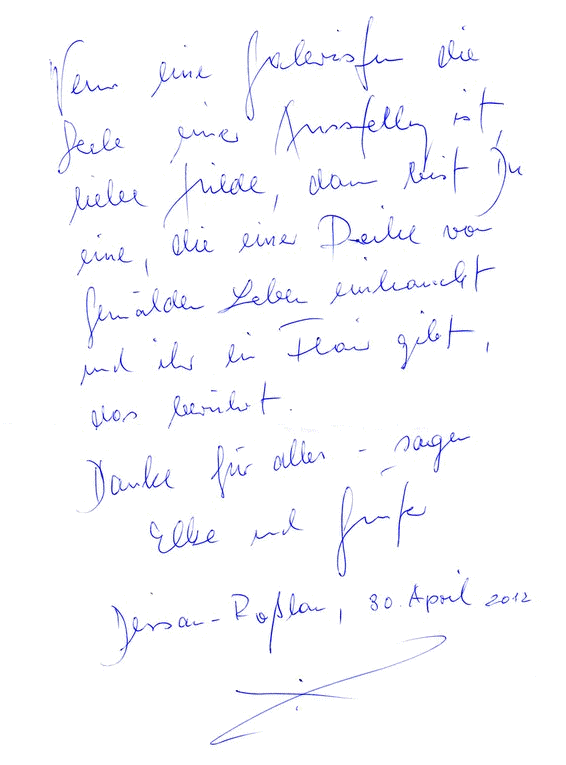 Wenn eine Galeristin die
Seele einer Ausstellung ist,
liebe Hilde, dann bist Du
eine, die einer Reihe von
Gemälden Leben einhaucht
und ihr ein Flair gibt,
das berührt.
Danke für alles - sagen
Elke und Günter
Dessau-Roßlau, 30. April 2012